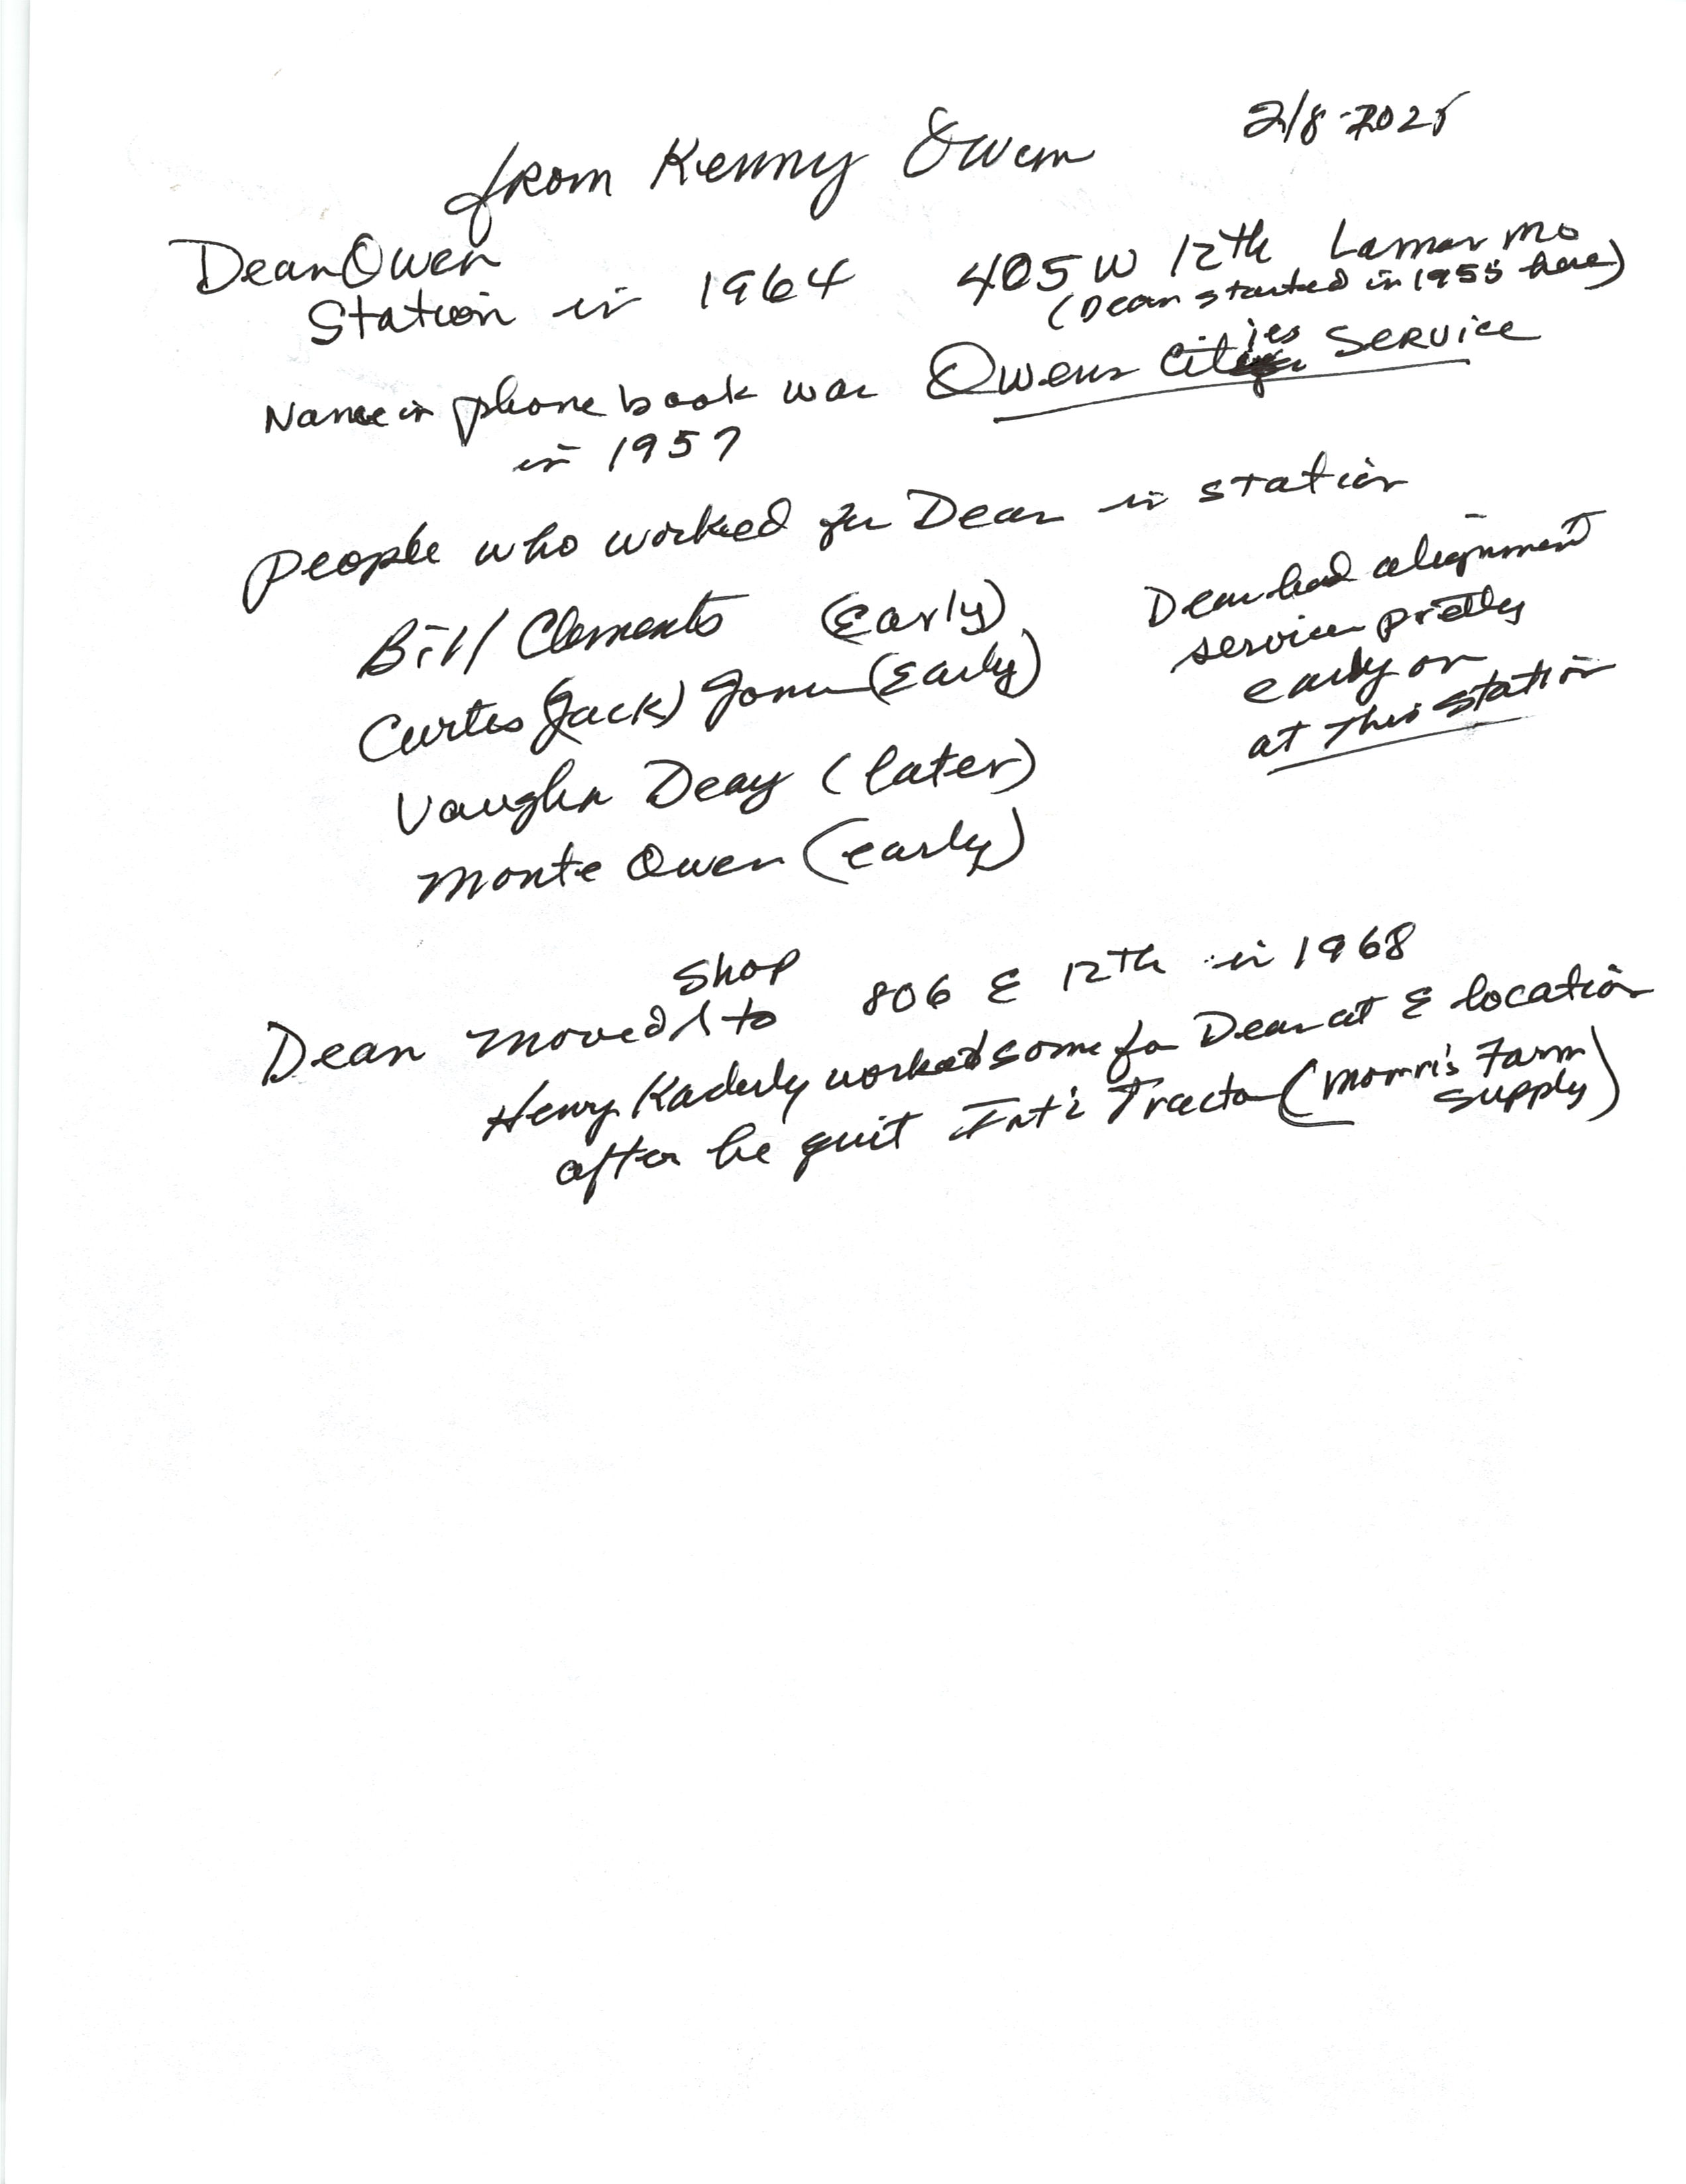 from Kenny Owen 2/8-2025
Dean Owen
Station in 1964 405 W 12th Lamar Mo
(Dean started in 1955 here)
Name in phone book was Owens Cities Service
in 1957
People who worked for Dean in station
Bill Clements (Early)
Curtis (Jack) Jones (Early)
Vaughn Deay (later)
Monte Owen (early)
Dean had alignment
service pretty
early on
at this station
Shop
Dean moved ^ to 806 E 12th in 1968
Henry Kaderly worked some for Dean at E location
after he quit Int'l Tractor (Morris Farm
Supply)